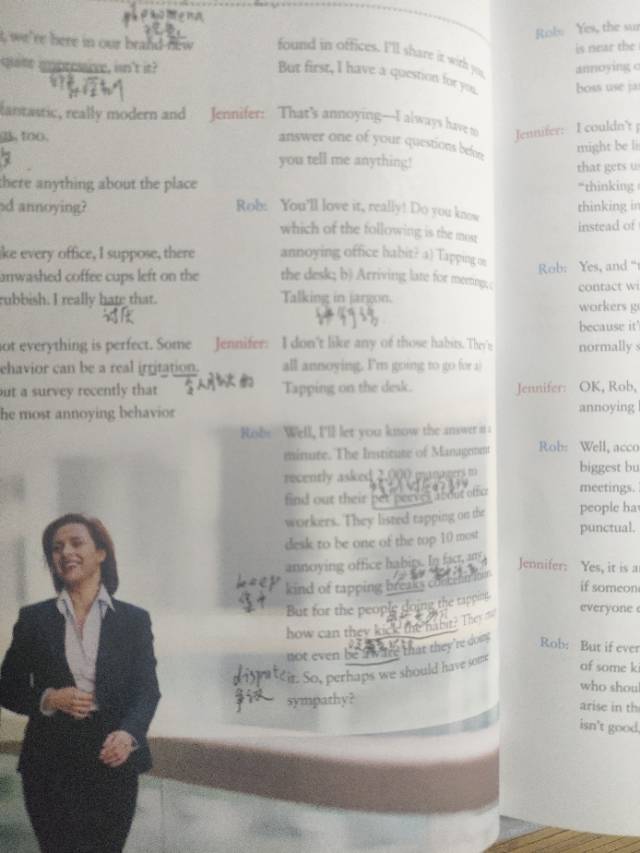 phenomena
we're here in our brand-new
quite impressive, isn't it?
fantastic, really modern and
too.
there anything about the place
annoying?
like every office, I suppose, there
unwashed coffee cups left on the
rubbish. I really hate that.
讨厌
not everything is perfect. Some
behavior can be a real irritation.
令人恼火的
out a survey recently that
the most annoying behavior
found in offices. I'll share it with you.
But first, I have a question for you.
Jennifer: That's annoying—I always have to
answer one of your questions before
you tell me anything!
Rob: You'll love it, really! Do you know
which of the following is the most
annoying office habit? a) Tapping on
the desk; b) Arriving late for meetings; c)
Talking in jargon.
Jennifer: I don't like any of those habits. They're
all annoying. I'm going to go for a)
Tapping on the desk.
Rob: Well, I'll let you know the answer in a
minute. The Institute of Management
recently asked 2,000 managers to
find out their pet peeves about office
workers. They listed tapping on the
desk to be one of the top 10 most
annoying office habits. In fact, any
keep
kind of tapping breaks concentration.
But for the people doing the tapping,
how can they kick the habit? They may
not even be aware that they're doing
dispute
it. So, perhaps we should have some
争议
sympathy?
Rob: Yes, the
is near the
annoying
boss use
Jennifer: I couldn't
might be
that gets
"thinking
thinking
instead of
Rob: Yes, and
contact
workers
because
normally
Jennifer: OK, Rob,
annoying
Rob: Well,
biggest
meetings.
people
punctual.
Jennifer: Yes, it is
if
everyone
Rob: But if
of some
who
arise in
isn't good,